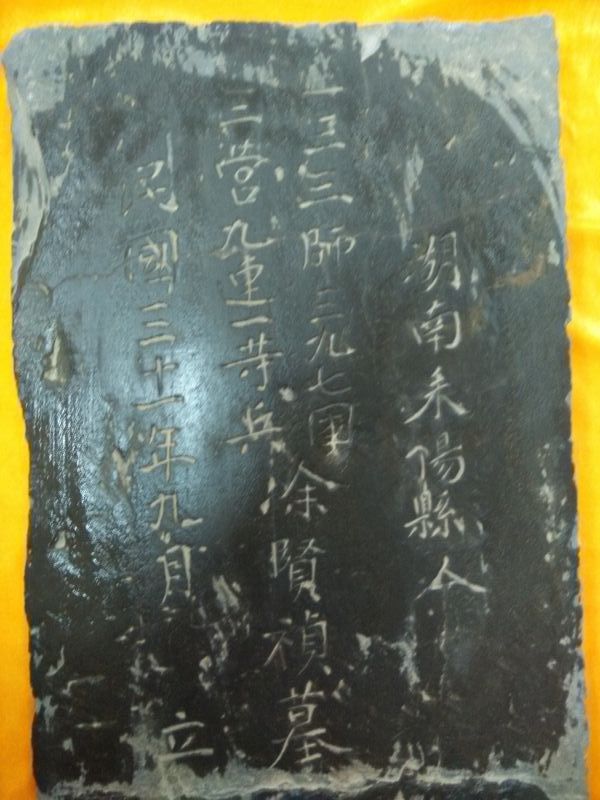 湖南耒陽縣人
一三三師三九七團
三營九連一等兵
涂賢禎墓
民國三十一年九月 立